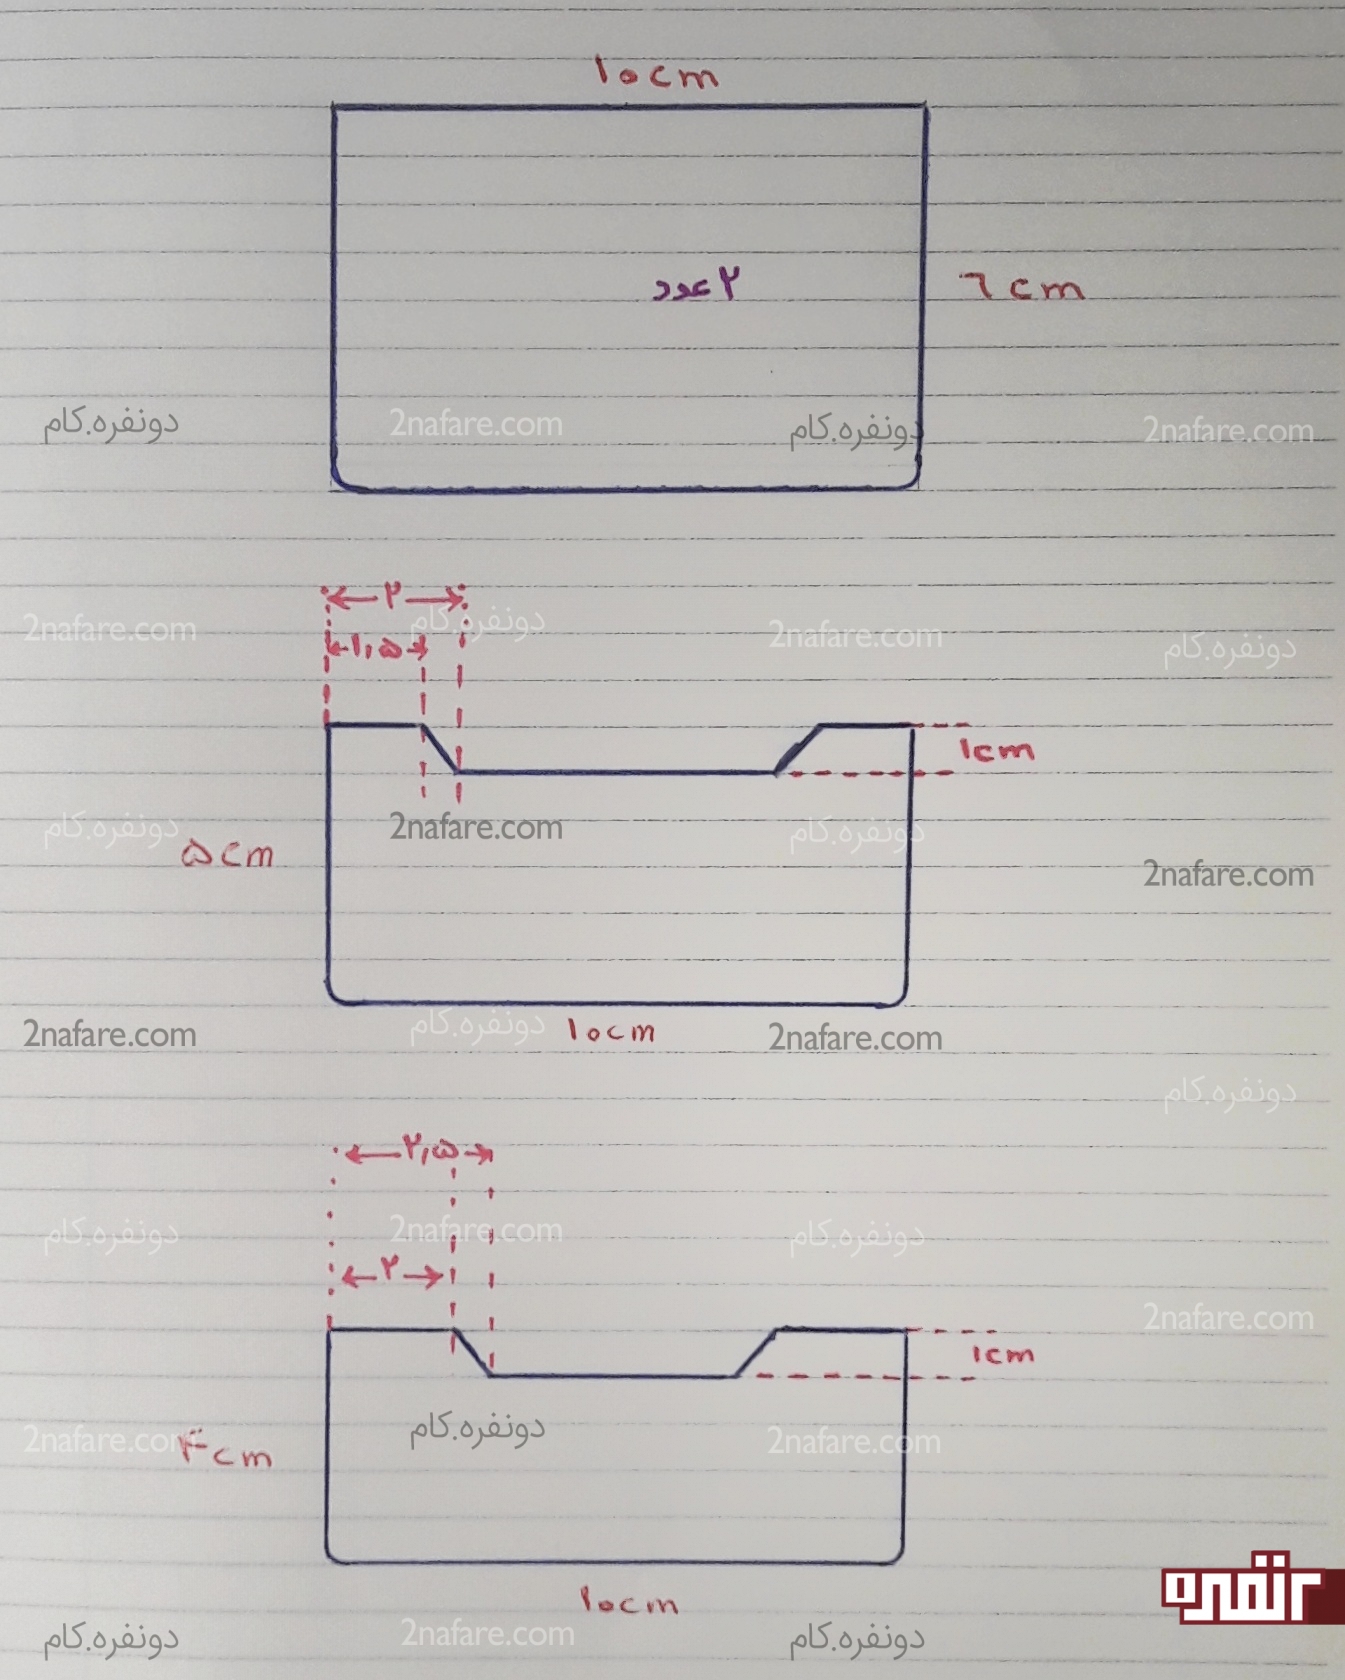 ۱۰cm
۲ عدد
۶cm
دونفره.کام
2nafare.com
دونفره.کام
2nafare.com
۲
2nafare.com
دونفره.کام
2nafare.com
دونفره.کام
۱,۵
۱cm
دونفره.کام
2nafare.com
دونفره.کام
۵cm
2nafare.com
2nafare.com
دونفره.کام
۱۰cm
2nafare.com
دونفره.کام
۲,۵
دونفره.کام
2nafare.com
دونفره.کام
۲
2nafare.com
۱cm
2nafare.com
۴cm
دونفره.کام
2nafare.com
۱۰cm
دونفره.کام
2nafare.com
دونفره.کام